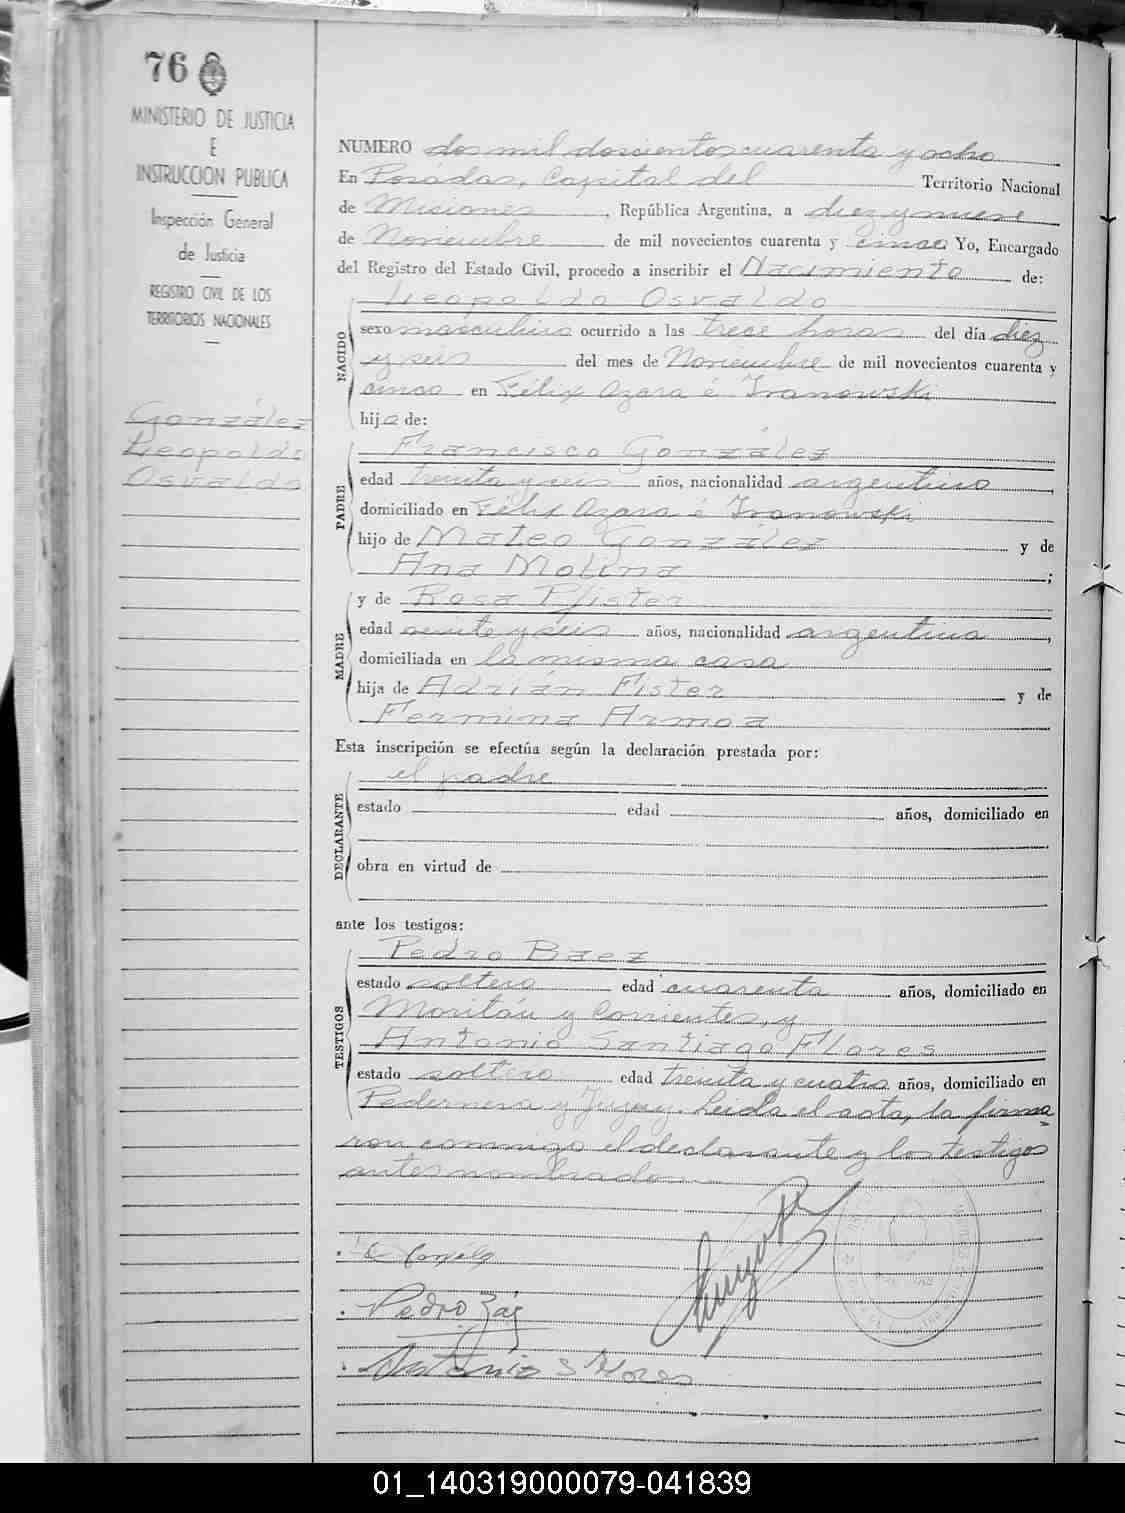 76
MINISTERIO DE JUSTICIA
E
INSTRUCCION PUBLICA
Inspección General
de Justicia
REGISTRO CIVIL DE LOS
TERRITORIOS NACIONALES
González
Leopoldo
Osvaldo
NUMERO dos mil doscientos cuarenta y ocho
En Posadas, Capital del Territorio Nacional
de Misiones, República Argentina, a diez y nueve
de Noviembre de mil novecientos cuarenta y cinco Yo, Encargado
del Registro del Estado Civil, procedo a inscribir el Nacimiento de:
NACIDO
Leopoldo Osvaldo
sexo masculino ocurrido a las trece horas del día diez
y seis del mes de Noviembre de mil novecientos cuarenta y
cinco en Félix Azara é Ivanowski
hijo de:
PADRE
Francisco González
edad treinta y seis años, nacionalidad argentino,
domiciliado en Félix Azara é Ivanowski
hijo de Mateo González y de
Ana Molina;
MADRE
y de Rosa Pfister
edad veinte y seis años, nacionalidad argentina,
domiciliada en la misma casa
hija de Adrián Fister y de
Fermina Armoa
Esta inscripción se efectúa según la declaración prestada por:
DECLARANTE
el padre
estado edad años, domiciliado en
obra en virtud de
ante los testigos:
TESTIGOS
Pedro Baez
estado soltero edad cuarenta años, domiciliado en
Moritán y Corrientes, y
Antonio Santiago Flores
estado soltero edad treinta y cuatro años, domiciliado en
Pedernera y Jujuy. Leida el acta, la firma=
ron conmigo el declarante y los testigos
antes nombrados.
Pedro
Antonio S Flores
01_140319000079-041839